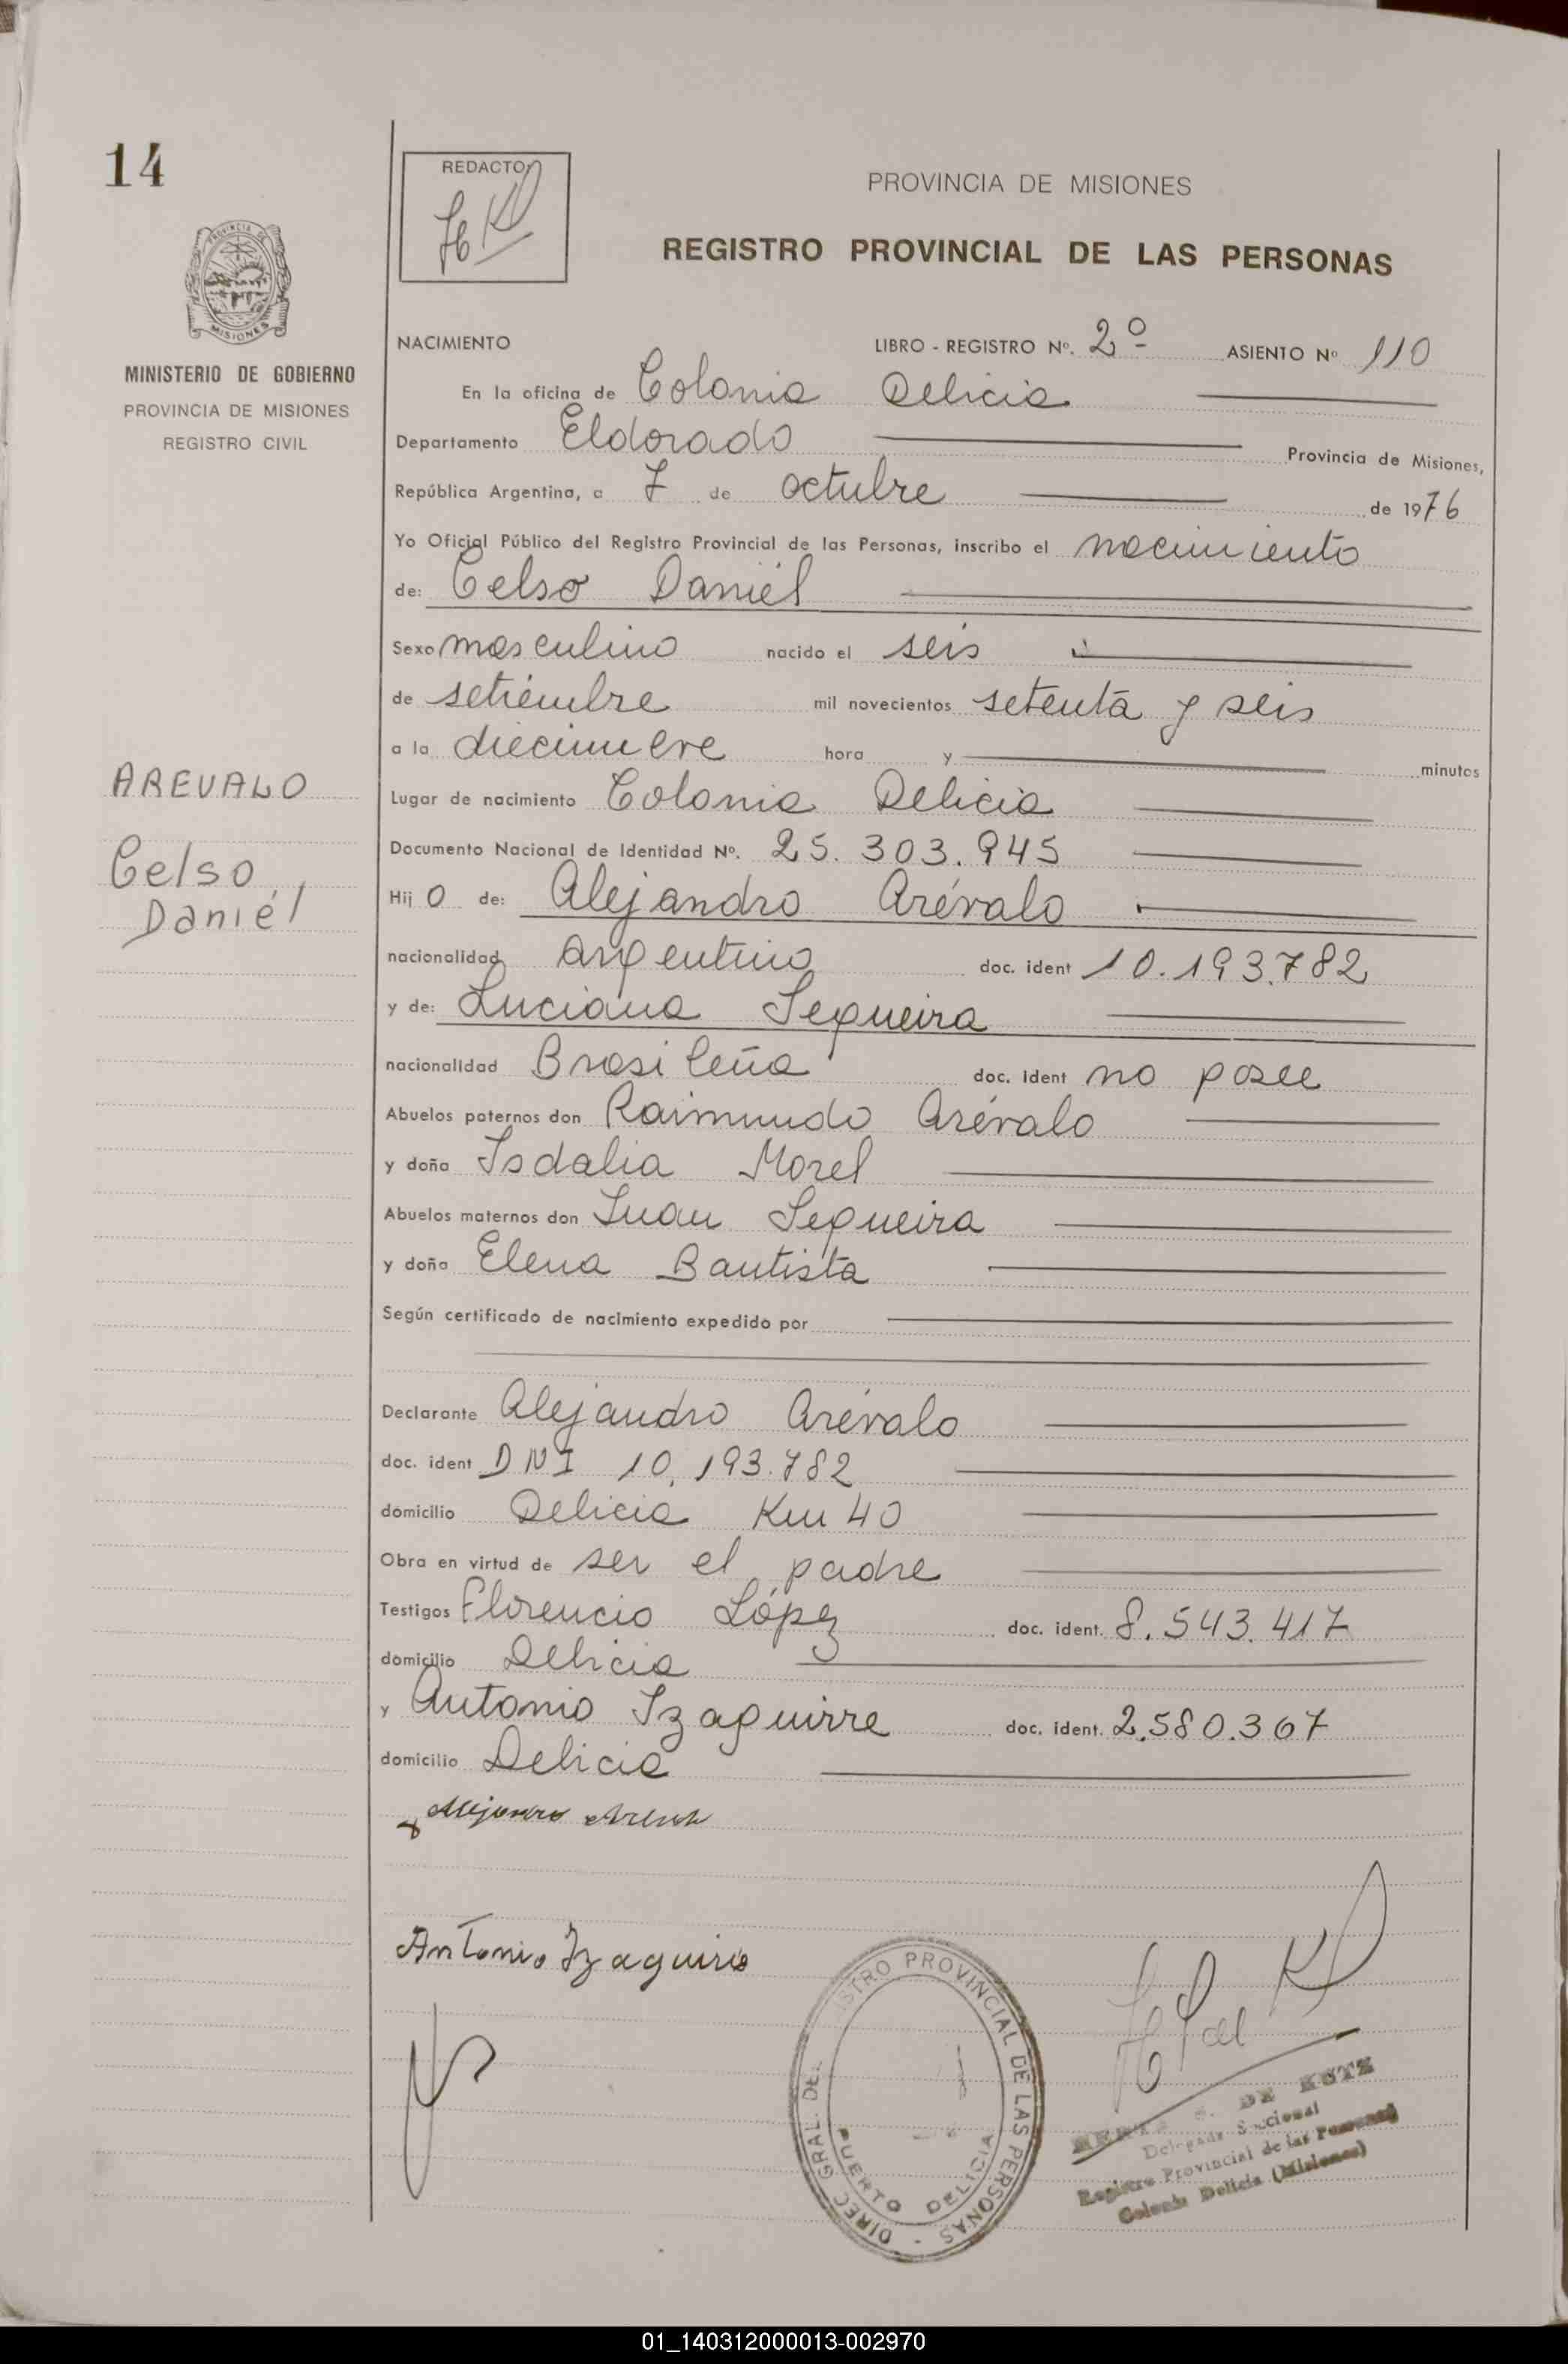 14
REDACTO:
PROVINCIA DE MISIONES
REGISTRO PROVINCIAL DE LAS PERSONAS
PROVINCIA DE
MISIONES
MINISTERIO DE GOBIERNO
PROVINCIA DE MISIONES
REGISTRO CIVIL
NACIMIENTO LIBRO - REGISTRO Nº. 2º ASIENTO Nº 110
En la oficina de Colonia Delicia
Departamento Eldorado Provincia de Misiones,
República Argentina, a 7 de octubre de 1976
Yo Oficial Público del Registro Provincial de las Personas, inscribo el nacimiento
de: Celso Daniél
Sexo masculino nacido el seis
de setiembre mil novecientos setenta y seis
a la diecinueve hora y minutos
Lugar de nacimiento Colonia Delicia
Documento Nacional de Identidad Nº. 25.303.945
Hijo de: Alejandro Arévalo
nacionalidad argentino doc. ident 10.193.782
y de: Luciana Sequeira
nacionalidad Brasileña doc. ident no posee
Abuelos paternos don Raimundo Arévalo
y doña Isdalia Morel
Abuelos maternos don Juan Sequeira
y doña Elena Bautista
Según certificado de nacimiento expedido por
Declarante Alejandro Arévalo
doc. ident DNI 10.193.782
domicilio Delicia Km 40
Obra en virtud de ser el padre
Testigos Florencio López doc. ident. 8.543.417
domicilio Delicia
y Antonio Izaguirre doc. ident. 2.580.367
domicilio Delicia
AREVALO
Celso
Daniél
Antonio Izaguirre
DIREC. GRAL. DEL REGISTRO PROVINCIAL DE LAS PERSONAS -
PUERTO DELICIA
DE KUTZ
Delegada Seccional
Registro Provincial de las Personas
Colonia Delicia (Misiones)
01_140312000013-002970